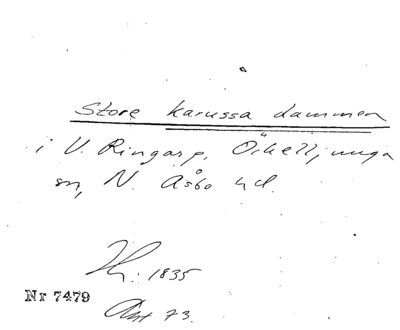 Store karussa dammen
i V. Ringarp, Örkelljunga
sn, N. Åsbo hd.
Hr: 1835
Nr 7479
Akt 73.